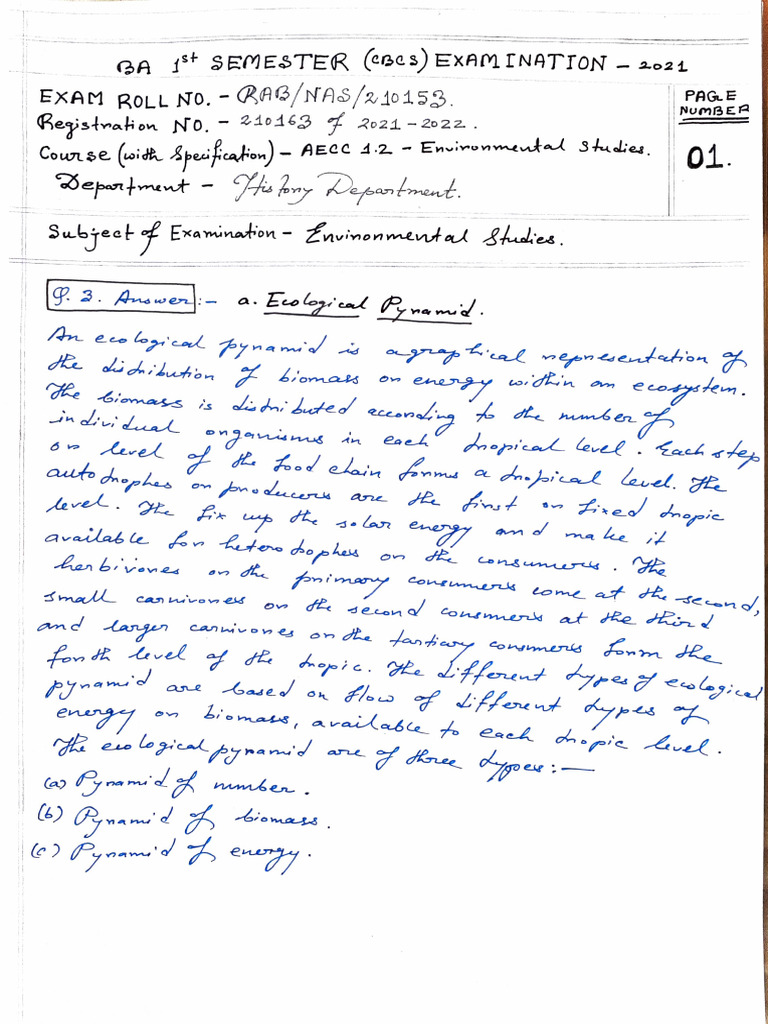 BA 1st SEMESTER (CBCS) EXAMINATION – 2021
EXAM ROLL NO. - RAB/NAS/210153.
Registration NO. - 210163 of 2021-2022.
Course (with Specification) - AECC 1.2 - Environmental Studies.
Department - History Department.
PAGE
NUMBER
01.
Subject of Examination - Environmental Studies.
Q. 3. Answer :- a. Ecological Pyramid.
An ecological pyramid is a graphical representation of
the distribution of biomass or energy within an ecosystem.
The biomass is distributed according to the number of
individual organisms in each tropical level. Each step
or level of the food chain forms a tropical level. The
autotrophes or producers are the first or fixed tropic
level. The fix up the solar energy and make it
available for heterotrophes or the consumers. The
herbivores or the primary consumers come at the second,
small carnivores or the second consmers at the third
and larger carnivores or the tartiary consmers form the
forth level of the tropic. The different types of ecological
pyramid are based on flow of different types of
energy or biomass, available to each tropic level.
The ecological pyramid are of three types:—
(a) Pyramid of number.
(b) Pyramid of biomass.
(c) Pyramid of energy.